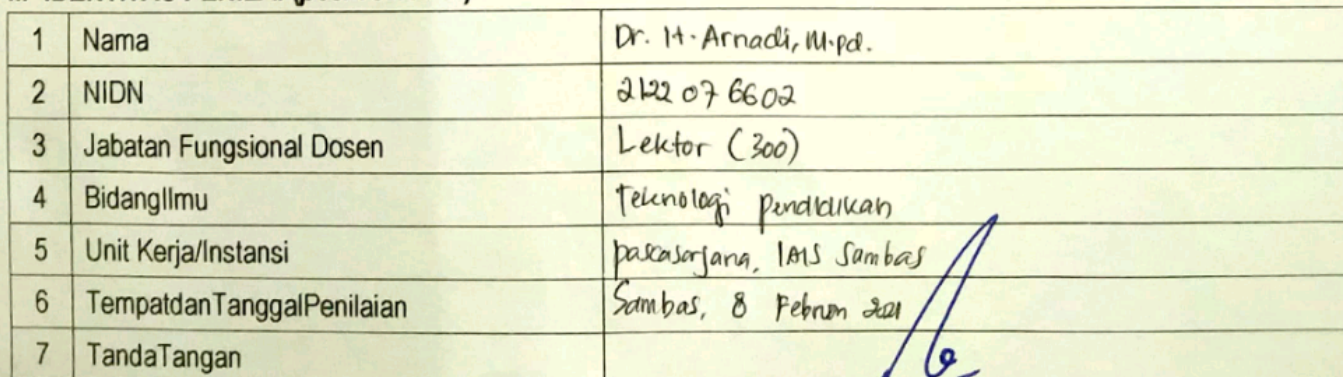 1 Nama Dr. H. Arnadi, M.pd.
2 NIDN 2122076602
3 Jabatan Fungsional Dosen Lektor (300)
4 BidangIlmu Teknologi pendidikan
5 Unit Kerja/Instansi pascasarjana, IAIS Sambas
6 TempatdanTanggalPenilaian Sambas, 8 Februari 2021
7 TandaTangan